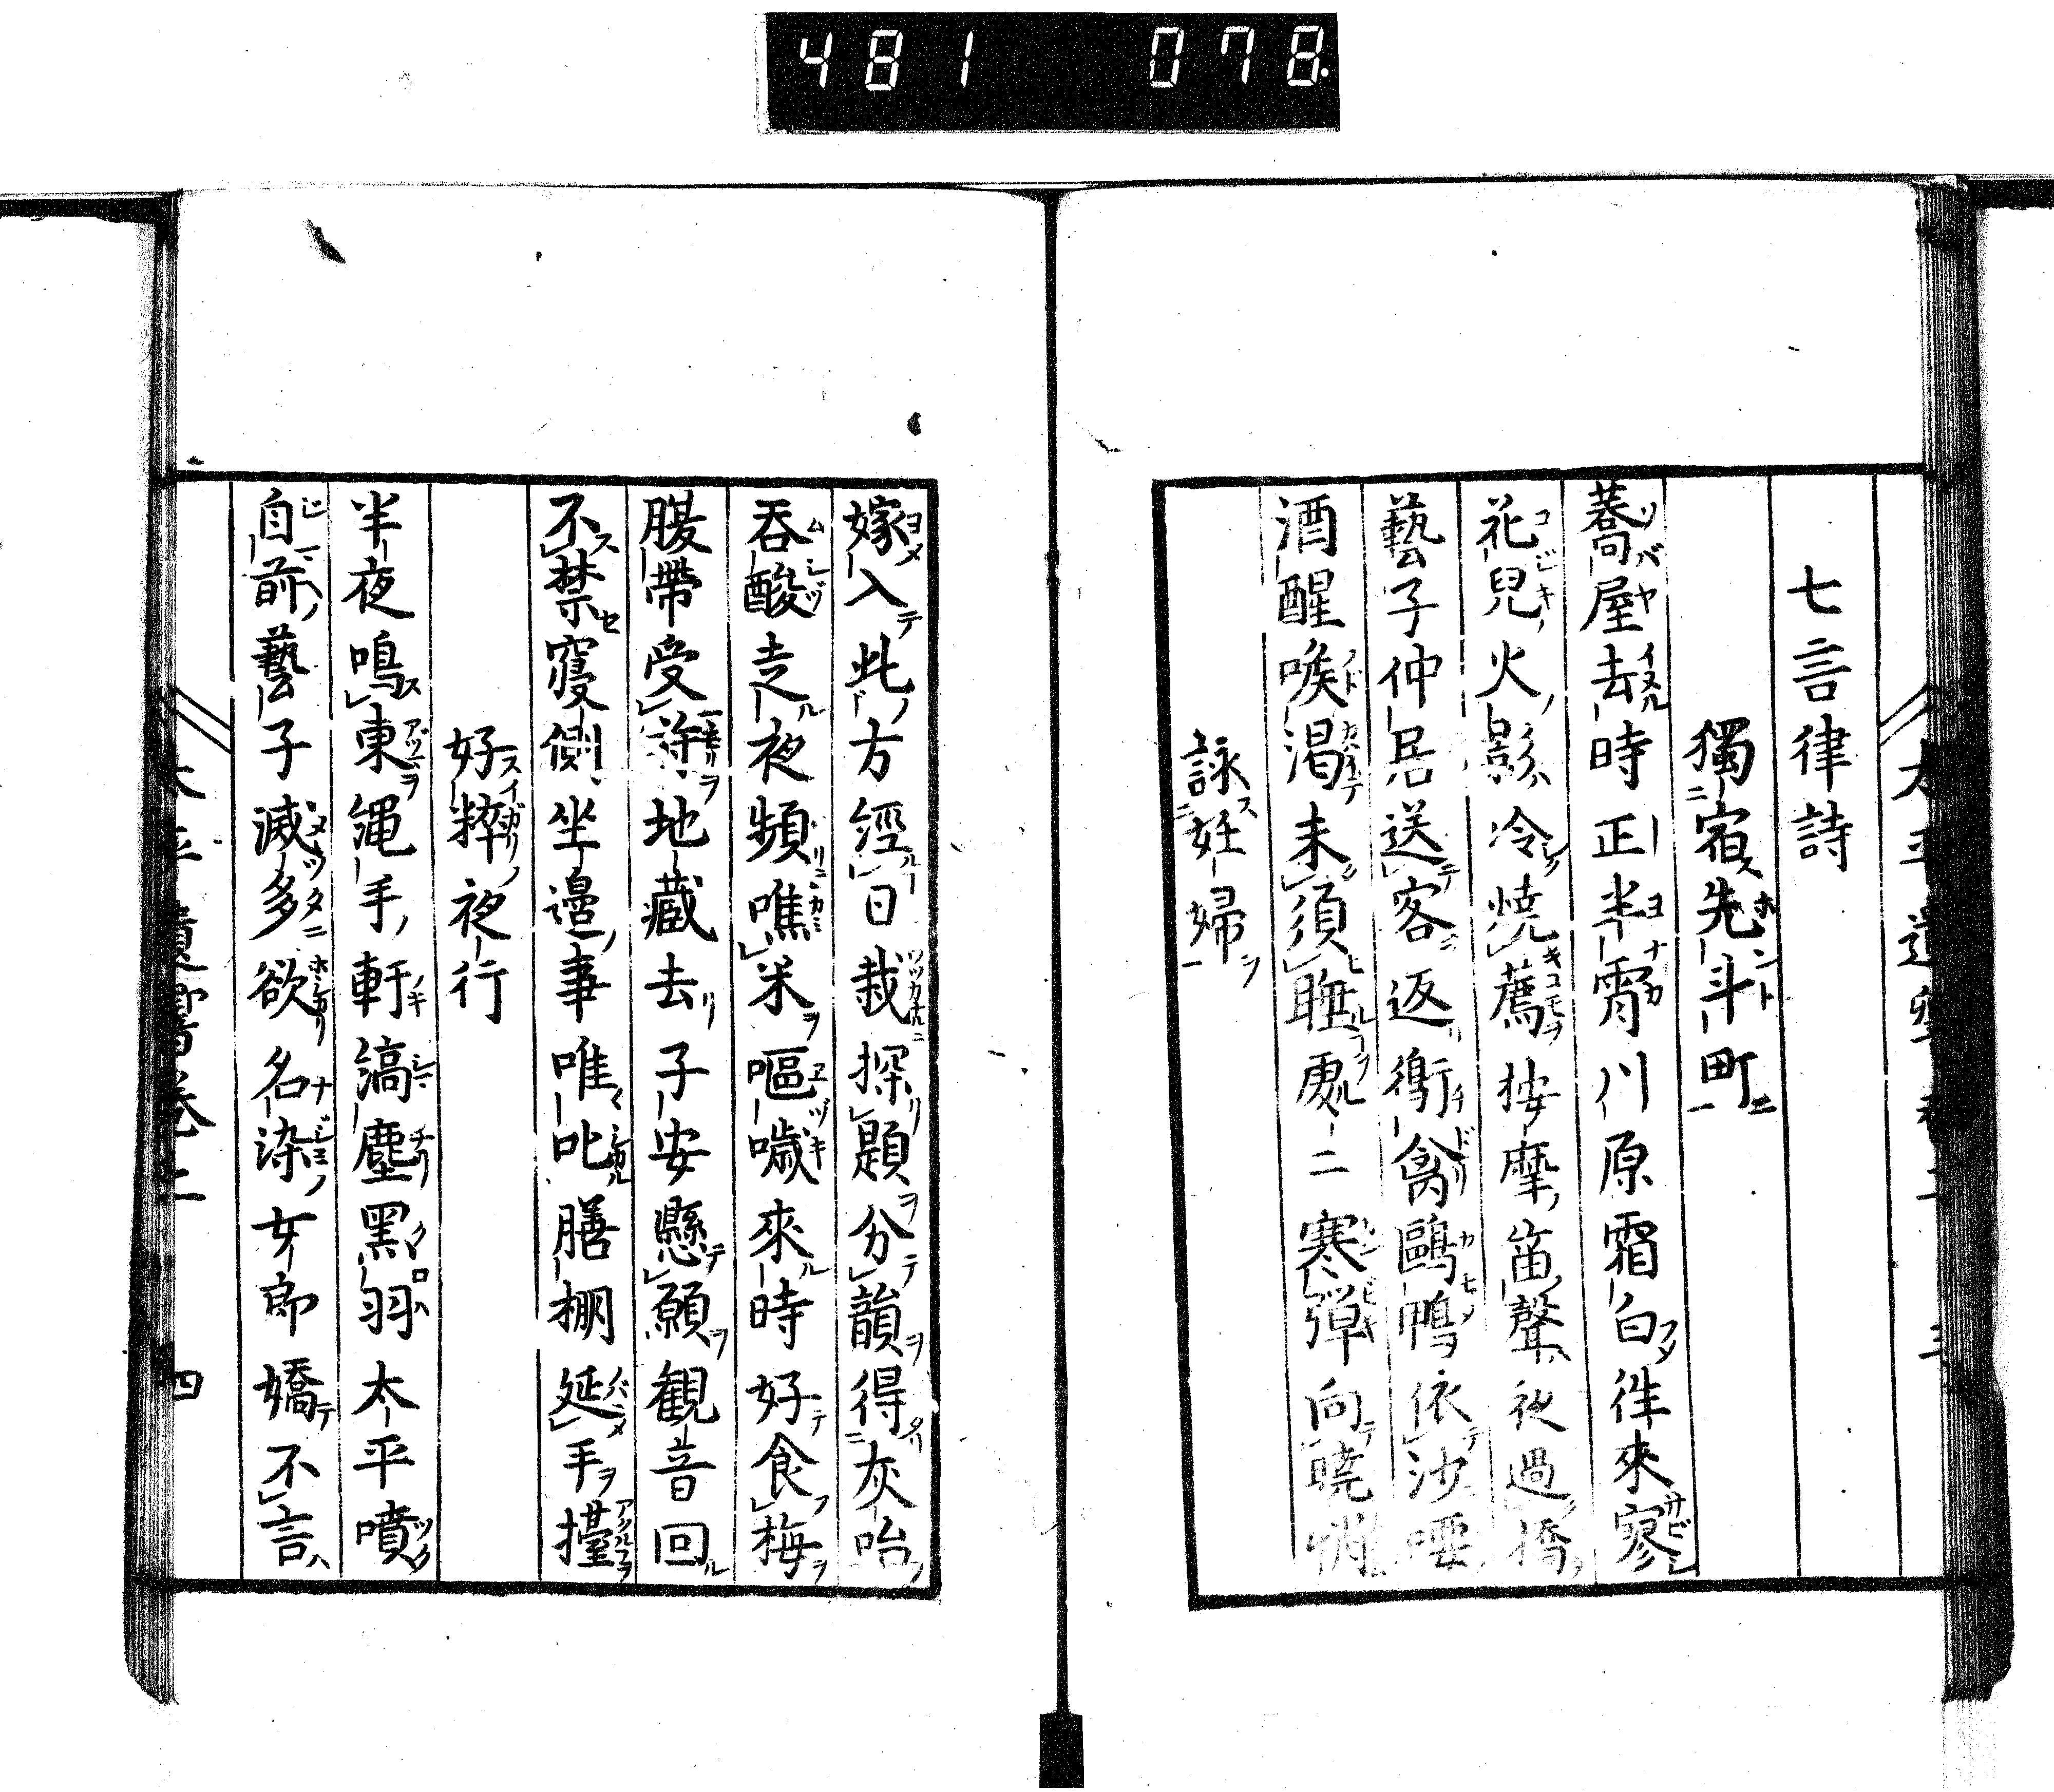 481 078
七言律詩
獨宿先斗町
蕎屋去時正半霄川原霜白徃來寥
花兒火影冷燒薦按摩笛聲夜過橋
藝子仲居送客返衡禽鷗鴨依沙
酒醒喉渇未須睡處二寒彈向曉
詠妊婦
嫁入此方經日栽探題分韻得灰咍
呑酸走夜頻噍米嘔噦來時好食梅
腹帶受符地藏去子安懸願観音回
不禁寢側坐邊事唯叱膳棚延手擡
好粹夜行
半夜鳴東繩手軒縞塵黑羽太平噴
自前藝子滅多欲名染女郎嬌不言
太平遺響卷二 四